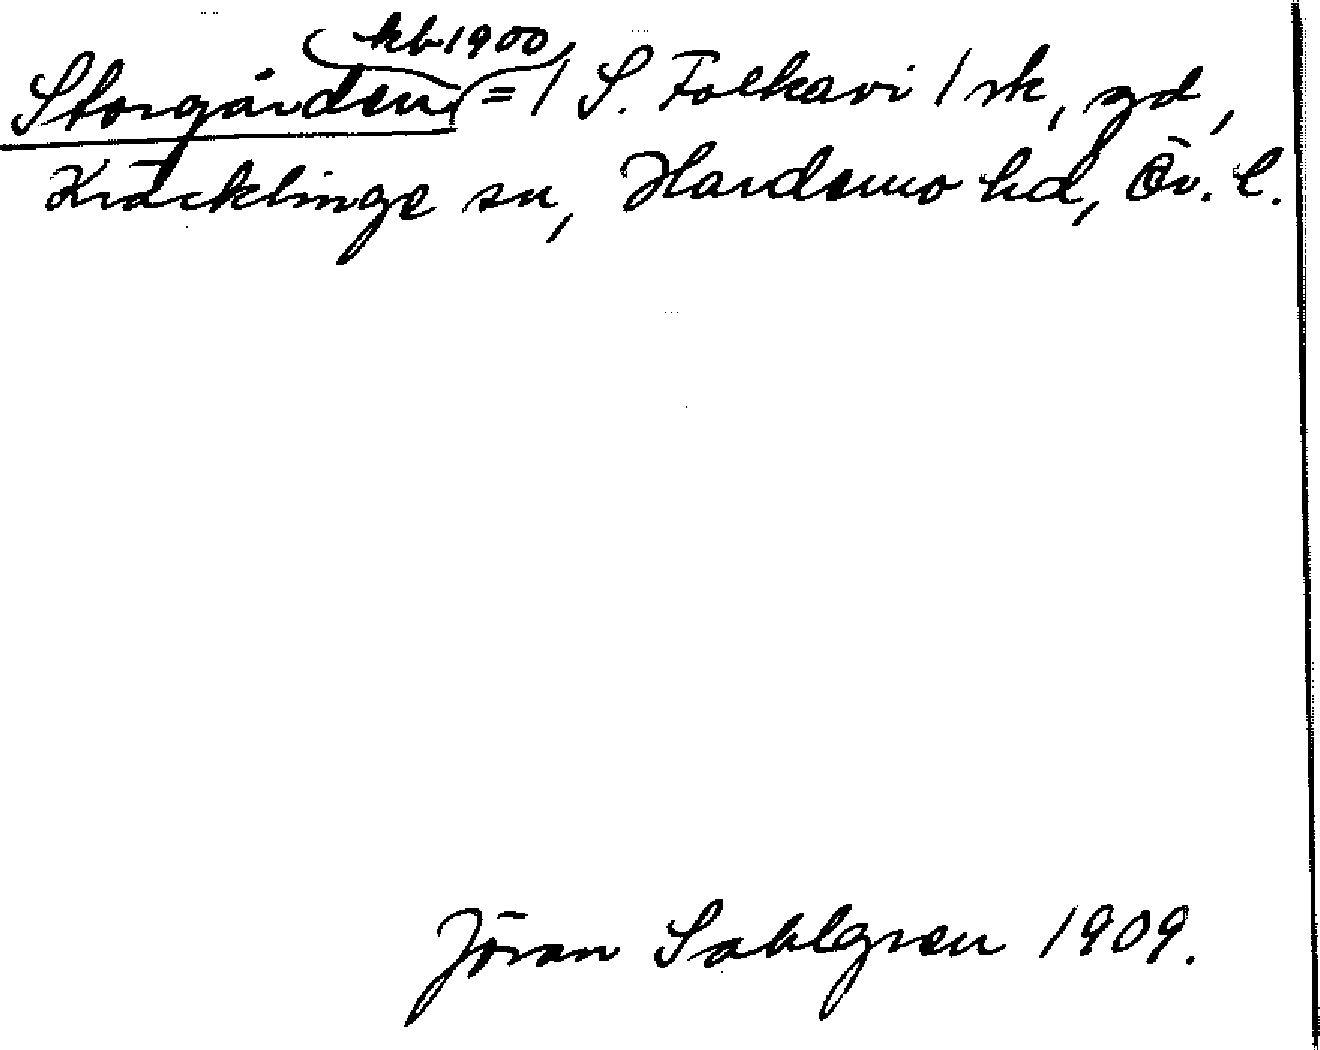 kb 1900
Storgården = / S. Folkavi / sk, gd,
Kräcklinge sn, Hardemo hd, Ör. l.
Jöran Sahlgren 1909.